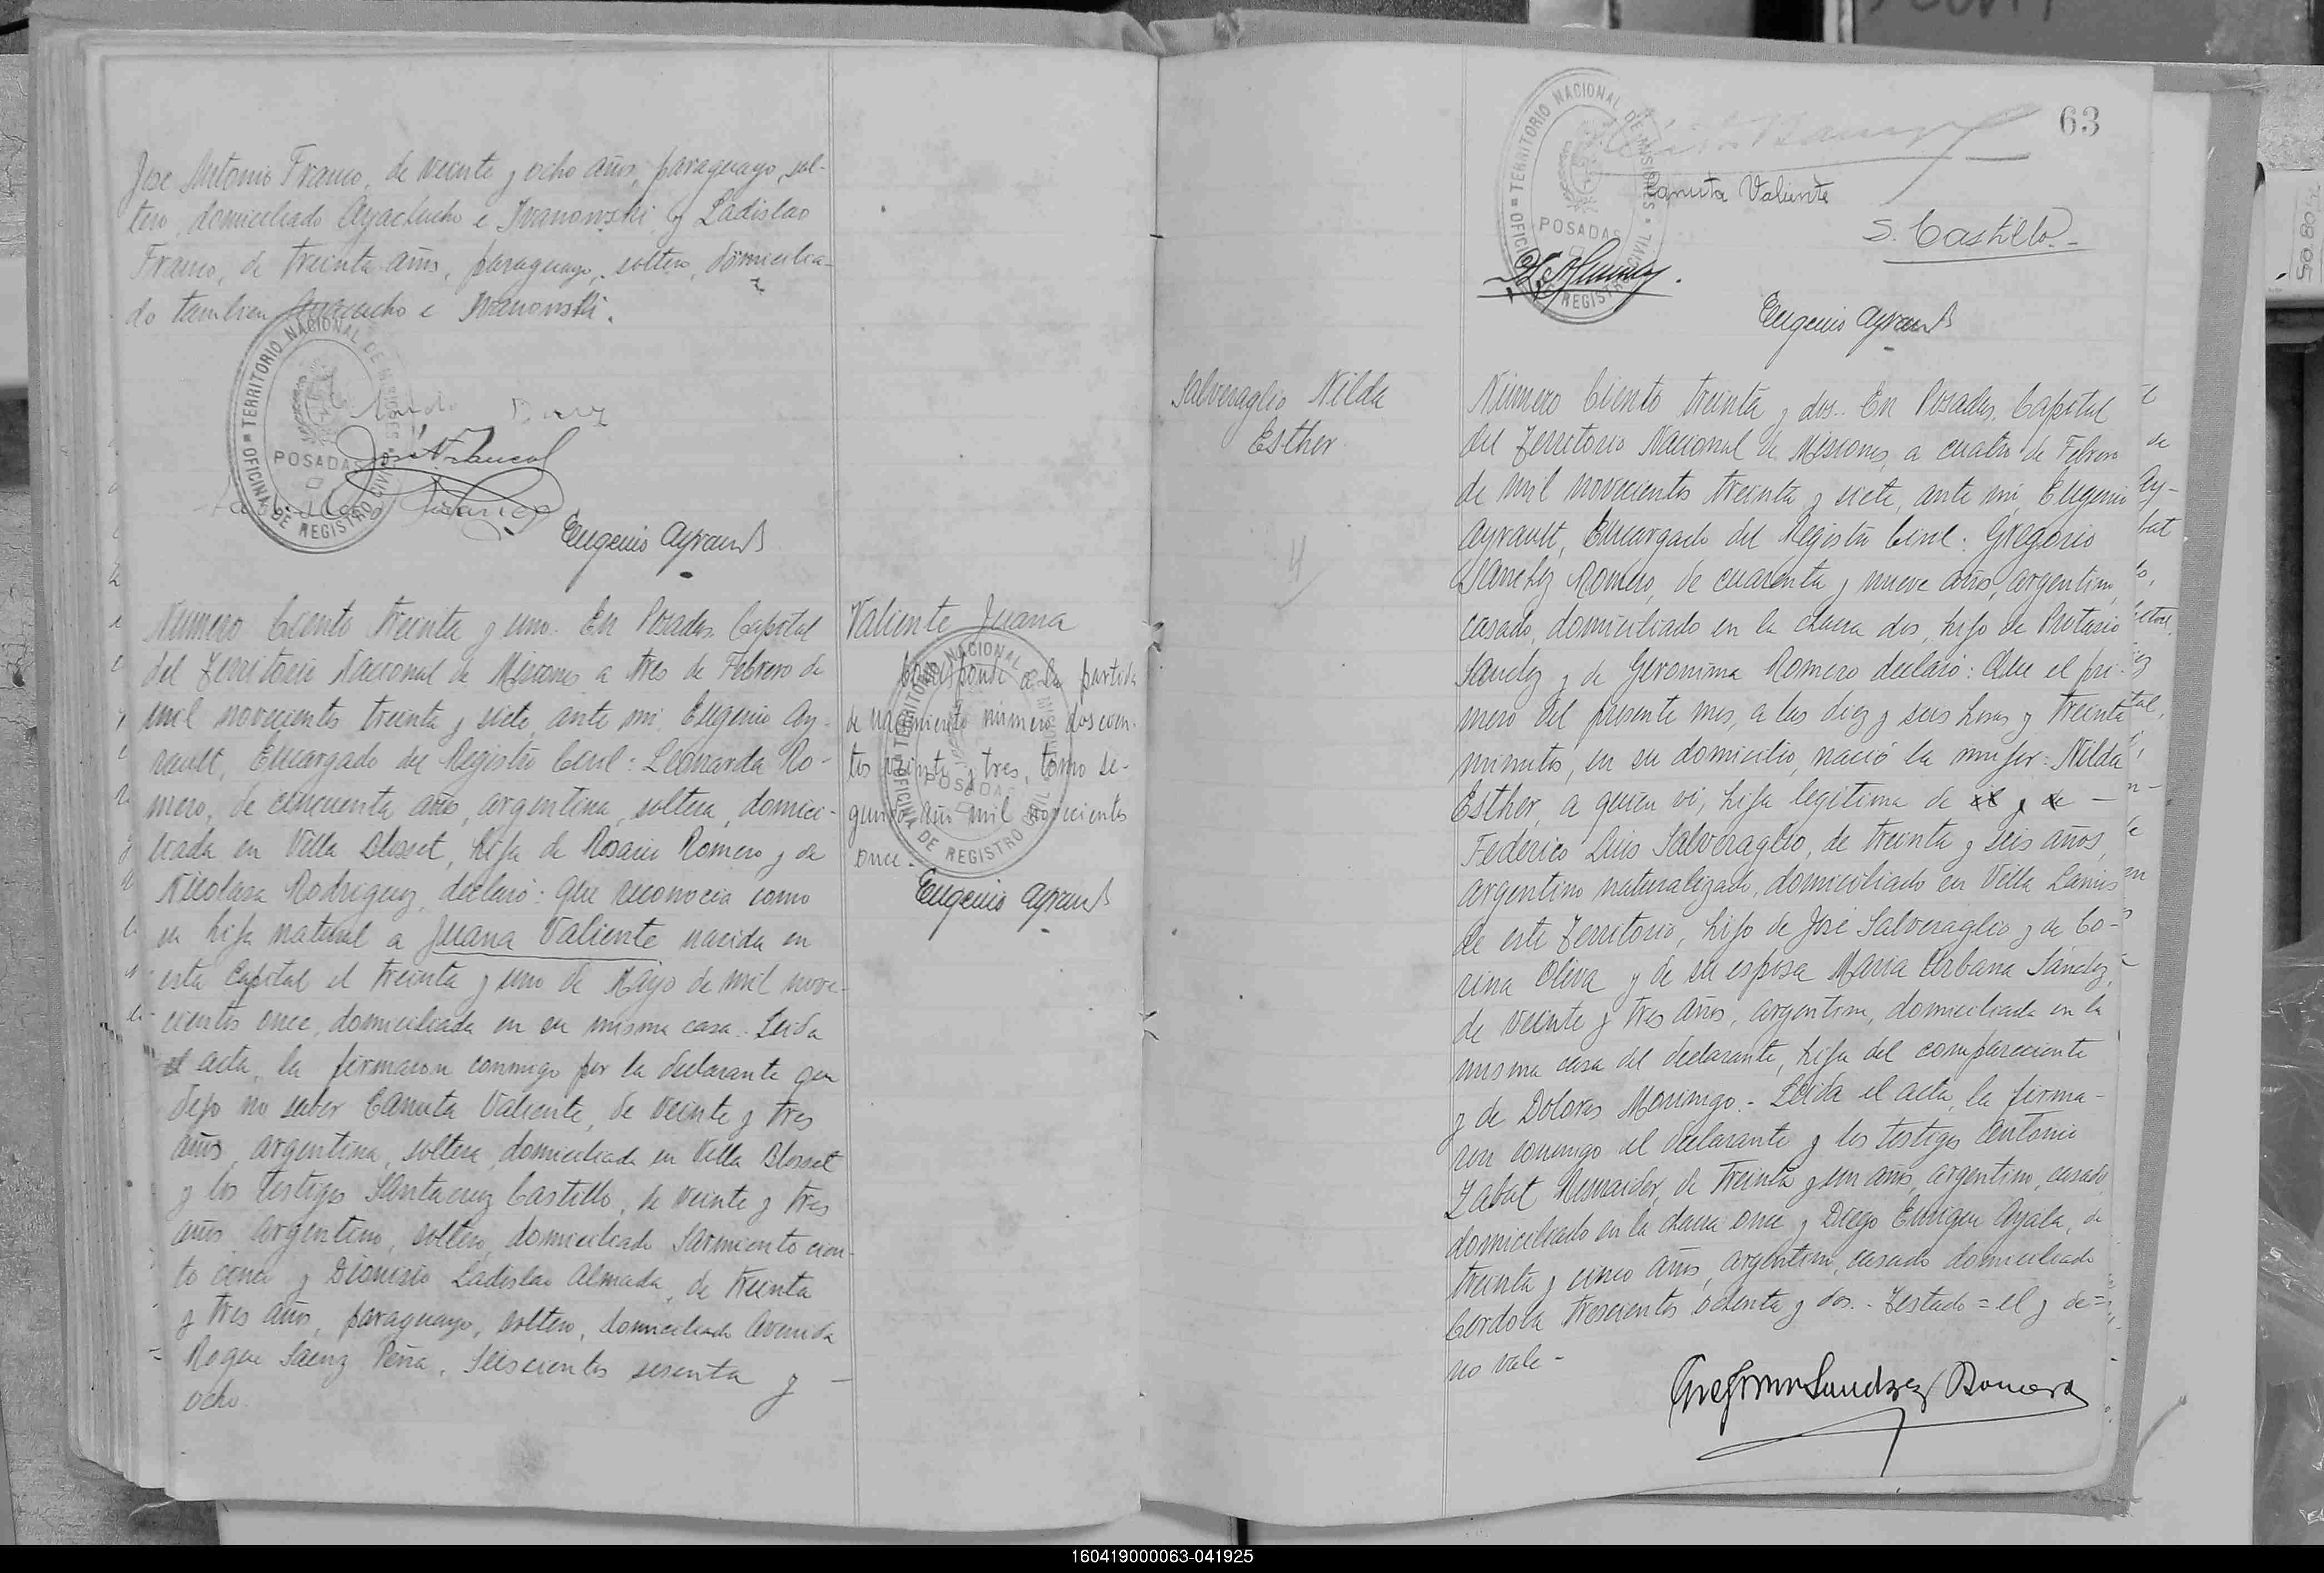 Jose Antonio Franco, de veinte y ocho años, paraguayo, sol-
tero, domiciliado Ayacucho e Ivanowski y Ladislao
Franco, de treinta años, paraguayo, soltero, domicilia-
do tambien Ayacucho e Ivanowski.
TERRITORIO NACIONAL DE MISIONES
POSADAS
OFICINA DE REGISTRO CIVIL
Eugenio Ayrault
Número Ciento treinta y uno. En Posadas Capital
del Territorio Nacional de Misiones a tres de Febrero de
mil novecientos treinta y siete, ante mi, Eugenio Ay-
rault, Encargado del Registro Civil: Leonarda Ro-
mero, de cincuenta años, argentina, soltera, domici-
liada en Villa Blosset, hija de Rosario Romero y de
Nicolasa Rodriguez, declaró: Que reconocia como
su hija natural a Juana Valiente nacida en
esta Capital el treinta y uno de Mayo de mil nove-
cientos once, domiciliada en su misma casa. Leida
el acta, la firmaron conmigo por la declarante que
dijo no saber Canuta Valiente, de veinte y tres
años, argentina, soltera, domiciliada en Villa Blosset
y los testigos Santacruz Castillo, de veinte y tres
años, argentino, soltero, domiciliado Sarmiento cien-
to cinco y Dionisio Ladislao Almada, de treinta
y tres años, paraguayo, soltero, domiciliado Avenida
Roque Saenz Peña, seiscientos sesenta y —
ocho.
Valiente Juana
Corresponde a la partida
de nacimiento número doscien-
tos veinte y tres, tomo se-
gundo año mil novecientos
once.-
TERRITORIO NACIONAL DE MISIONES
POSADAS
OFICINA DE REGISTRO CIVIL
Eugenio Ayrault
63
TERRITORIO NACIONAL DE MISIONES
POSADAS
OFICINA DE REGISTRO CIVIL
Canuta Valiente
S. Castillo.-
Eugenio Ayrault
Salveraglio Nilda
Esther
4
Número Ciento treinta y dos. En Posadas, Capital
del Territorio Nacional de Misiones, a cuatro de Febrero
de mil novecientos treinta y siete, ante mi, Eugenio
Ayrault, Encargado del Registro Civil: Gregorio
Sanchez Romero, de cuarenta y nueve años, argentino,
casado, domiciliado en la chacra dos, hijo de Protasio
Sanchez y de Geronima Romero declaró: Que el pri-
mero del presente mes, a las diez y seis horas y treinta
minutos, en su domicilio, nació la mujer: Nilda
Esther, a quien vi, hija legitima de el y de —
Federico Luis Salveraglio, de treinta y seis años,
argentino naturalizado, domiciliado en Villa Lanus
de este Territorio, hijo de José Salveraglio y de Co-
rina Oliva y de su esposa Maria Urbana Sanchez,
de veinte y tres años, argentina, domiciliada en la
misma casa del declarante, hija del compareciente
y de Dolores Morinigo.- Leida el acta, la firma-
ron conmigo el declarante y los testigos Antonio
Zabat de treinta y un años, argentino, casado
domiciliado en la chacra once y Diego Enrique Ayala, de
treinta y cinco años, argentino, casado domiciliado
Cordoba trescientos ochenta y dos.- Testado = el y de =
no vale-
Gregorio Sanchez Romero
160419000063-041925